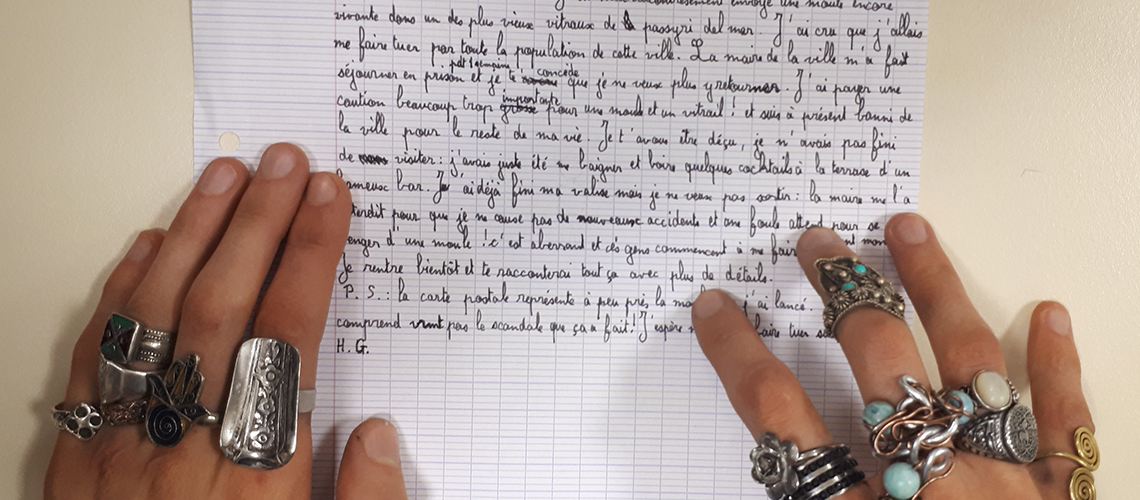 envoyé une moule encore
vivante dans un des plus vieux vitraux de passyri del mar. J'ai cru que j'allais
me faire tuer par toute la population de cette ville. La maire de la ville m'a fait
séjourner en prison pdt 1 semaine et je te concède que je ne veux plus y retourner. J'ai payer une
caution beaucoup trop importante pour une moule et un vitrail ! et suis à présent banni de
la ville pour le reste de ma vie. Je t'avoue être déçu, je n'avais pas fini
de visiter : j'avais juste été me baigner et boire quelques cocktails à la terrasse d'un
fameux bar. J'ai déjà fini ma valise mais je ne veux pas sortir : la maire me l'a
interdit pour que je ne cause pas de nouveaux accidents et une foule attend pour se
venger d'une moule ! c'est aberrant et ces gens commencent à me fair
Je rentre bientôt et te racconterai tout ça avec plus de détails.
P.S. : la carte postale représente à peu près la j'ai lancé.
comprend pas le scandale que ça a fait ! J'espère faire tuer
H. G.